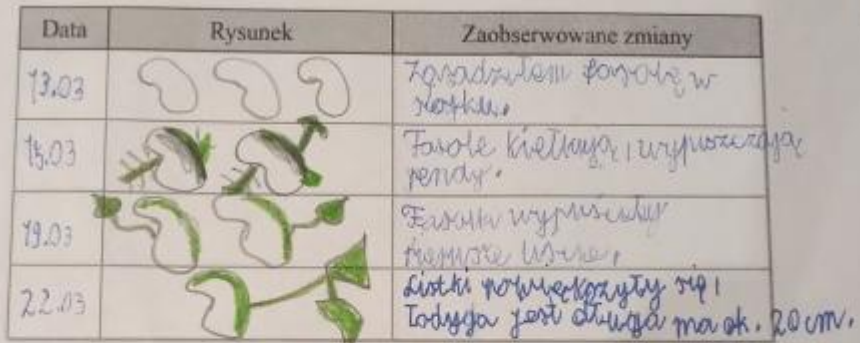 Data Rysunek Zaobserwowane zmiany
13.03 Zasadziłem fasolę w
słoiku.
15.03 Fasole kiełkują i wypuszczają
pendy.
19.03 Fasolki wypuściły
pierwsze liście.
22.03 Listki powiększyły się i
łodyga jest długa ma ok. 20 cm.